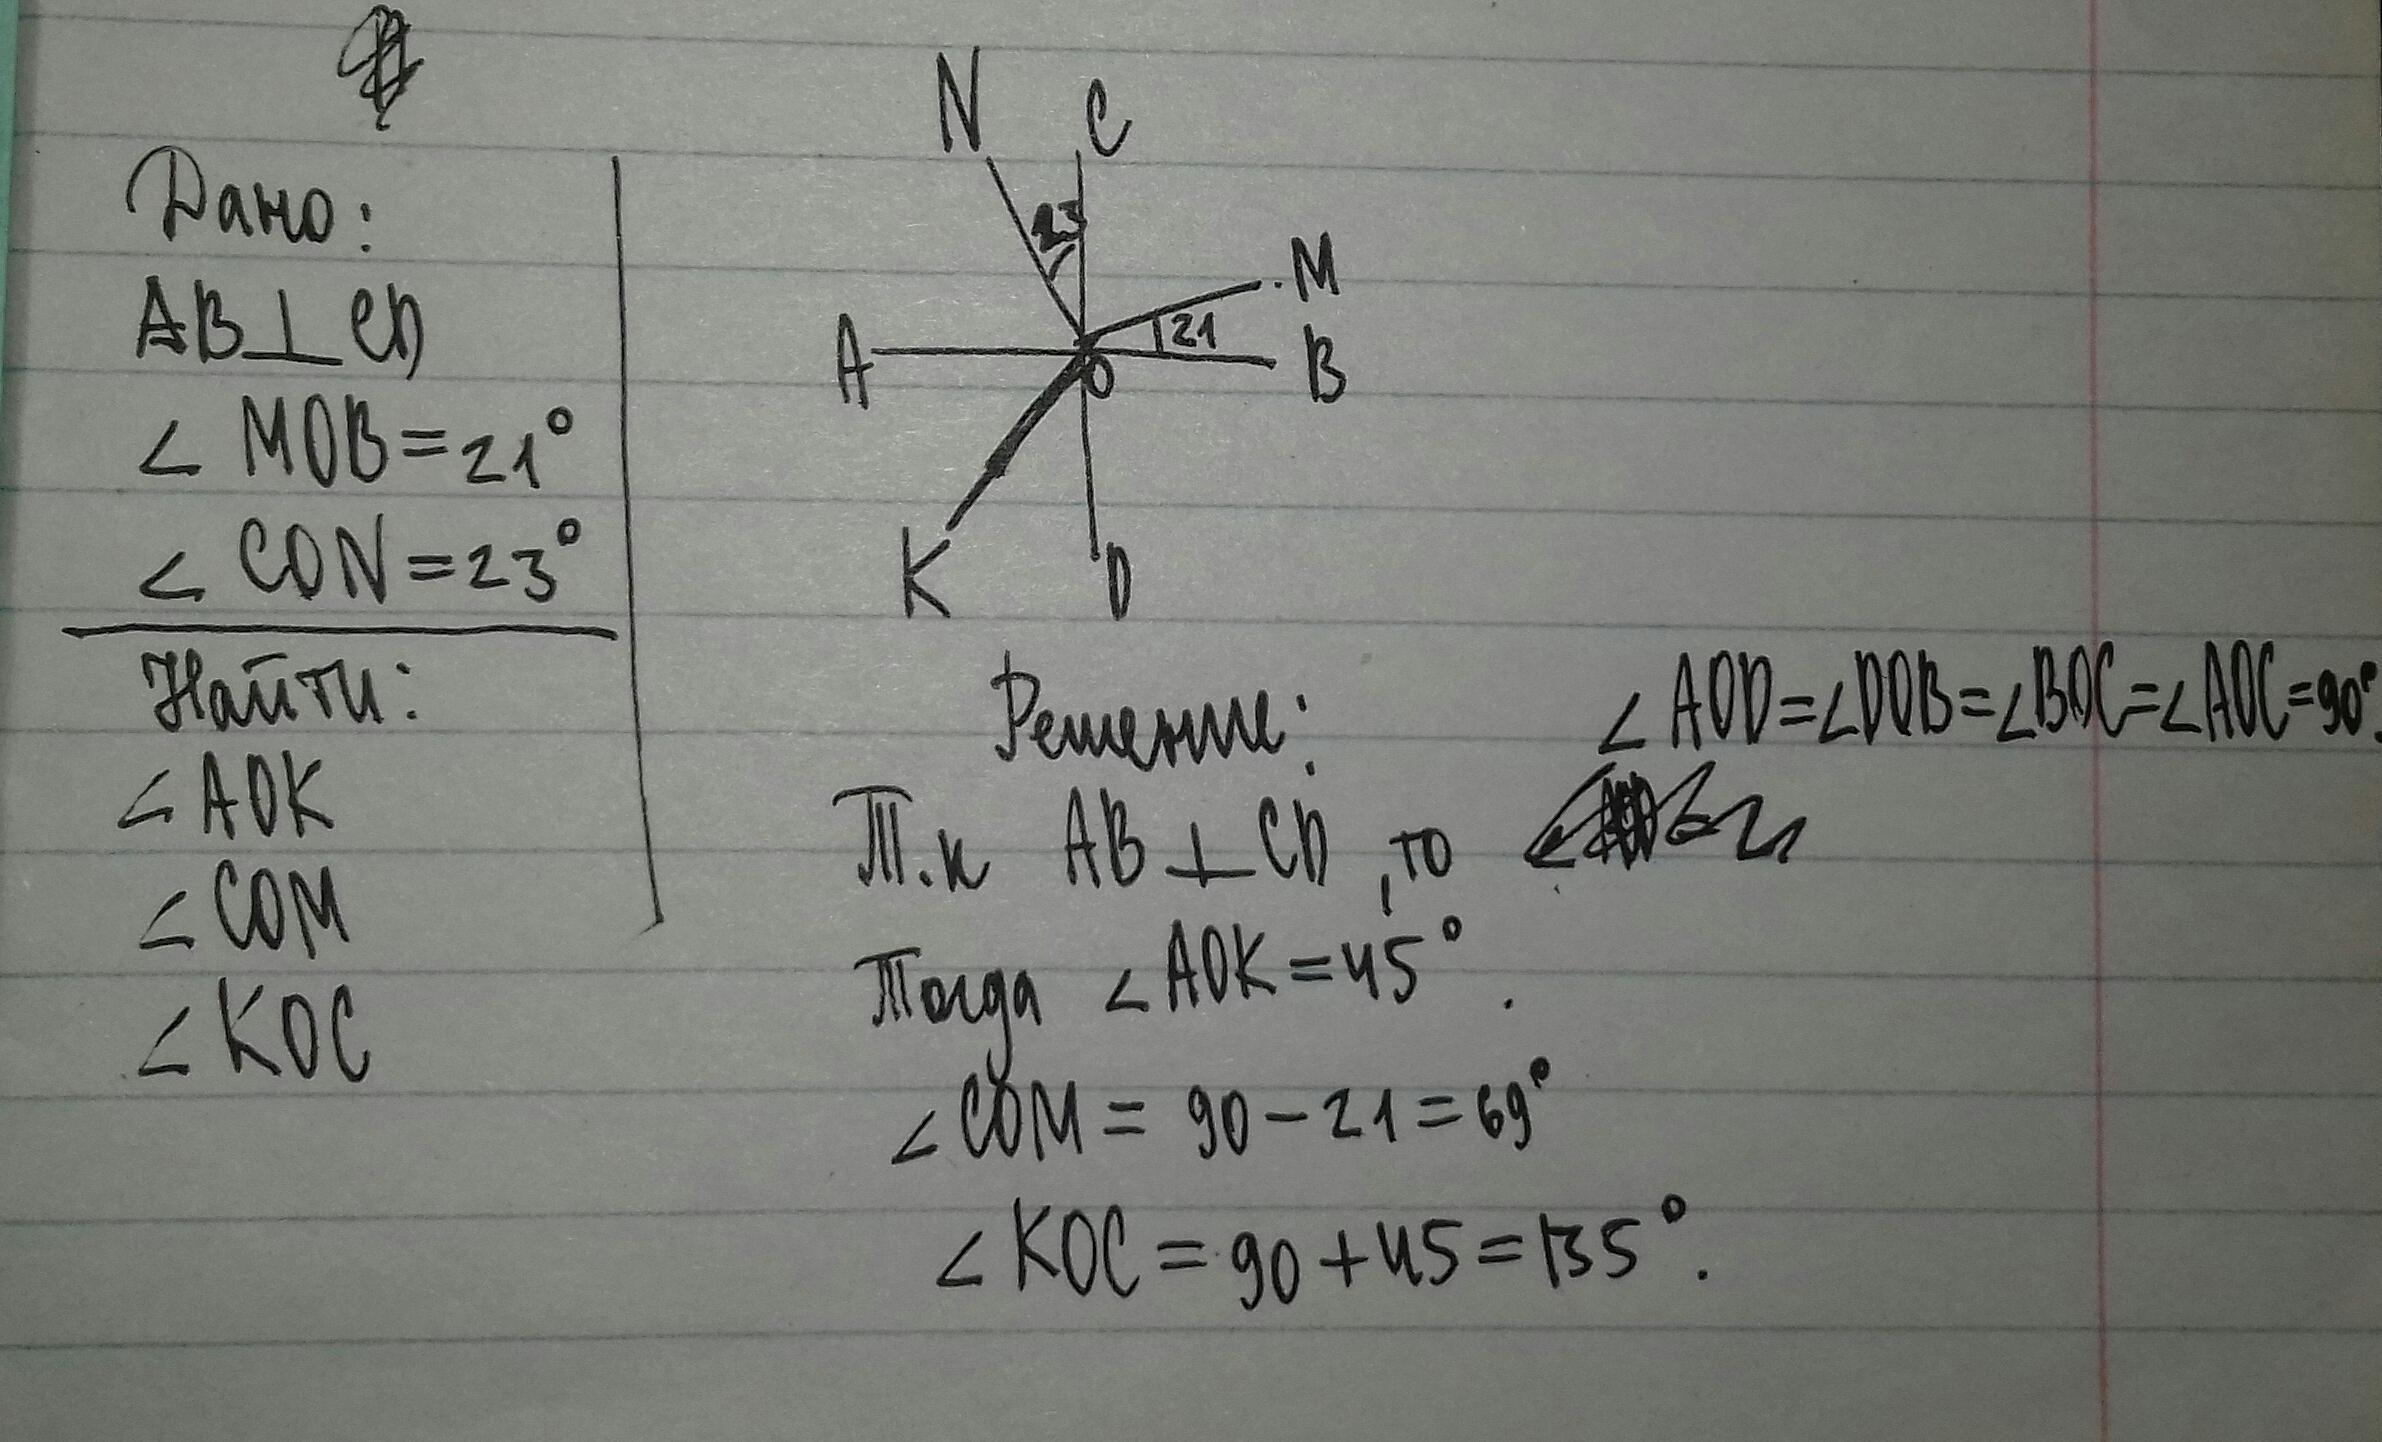 Дано:
AB ⊥ CD
< MOB = 21°
< CON = 23°
Найти:
< AOK
< COM
< KOC
N
C
23
M
21
A
O
B
K
D
Решение:
< AOD = < DOB = < BOC = < AOC = 90°.
Т.к AB ⊥ CD, то
Тогда < AOK = 45°.
< COM = 90 - 21 = 69°
< KOC = 90 + 45 = 135°.